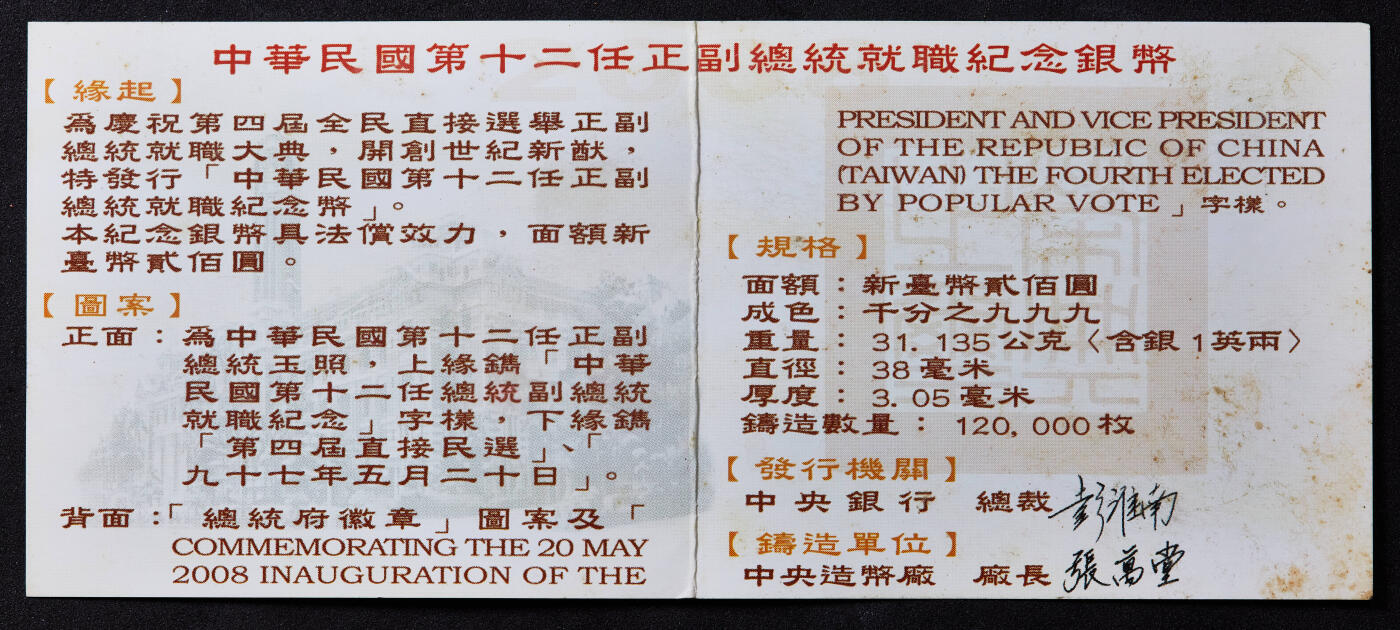 中華民國第十二任正副總統就職紀念銀幣
【緣起】
爲慶祝第四屆全民直接選舉正副
總統就職大典，開創世紀新猷，
特發行「中華民國第十二任正副
總統就職紀念幣」。
本紀念銀幣具法償效力，面額新
臺幣貳佰圓。
【圖案】
正面：爲中華民國第十二任正副
總統玉照，上緣鐫「中華
民國第十二任總統副總統
就職紀念」字樣，下緣鐫
「第四屆直接民選」、「
九十七年五月二十日」。
背面：「總統府徽章」圖案及「
COMMEMORATING THE 20 MAY
2008 INAUGURATION OF THE
PRESIDENT AND VICE PRESIDENT
OF THE REPUBLIC OF CHINA
(TAIWAN) THE FOURTH ELECTED
BY POPULAR VOTE」字樣。
【規格】
面額：新臺幣貳佰圓
成色：千分之九九九
重量：31.135公克〈含銀1英兩〉
直徑：38毫米
厚度：3.05毫米
鑄造數量：120,000枚
【發行機關】
中央銀行 總裁 彭淮南
【鑄造單位】
中央造幣廠 廠長 張萬堂